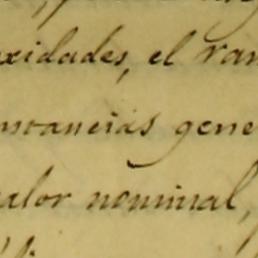 xidades, el ram
nstancias gene
valor nominal,